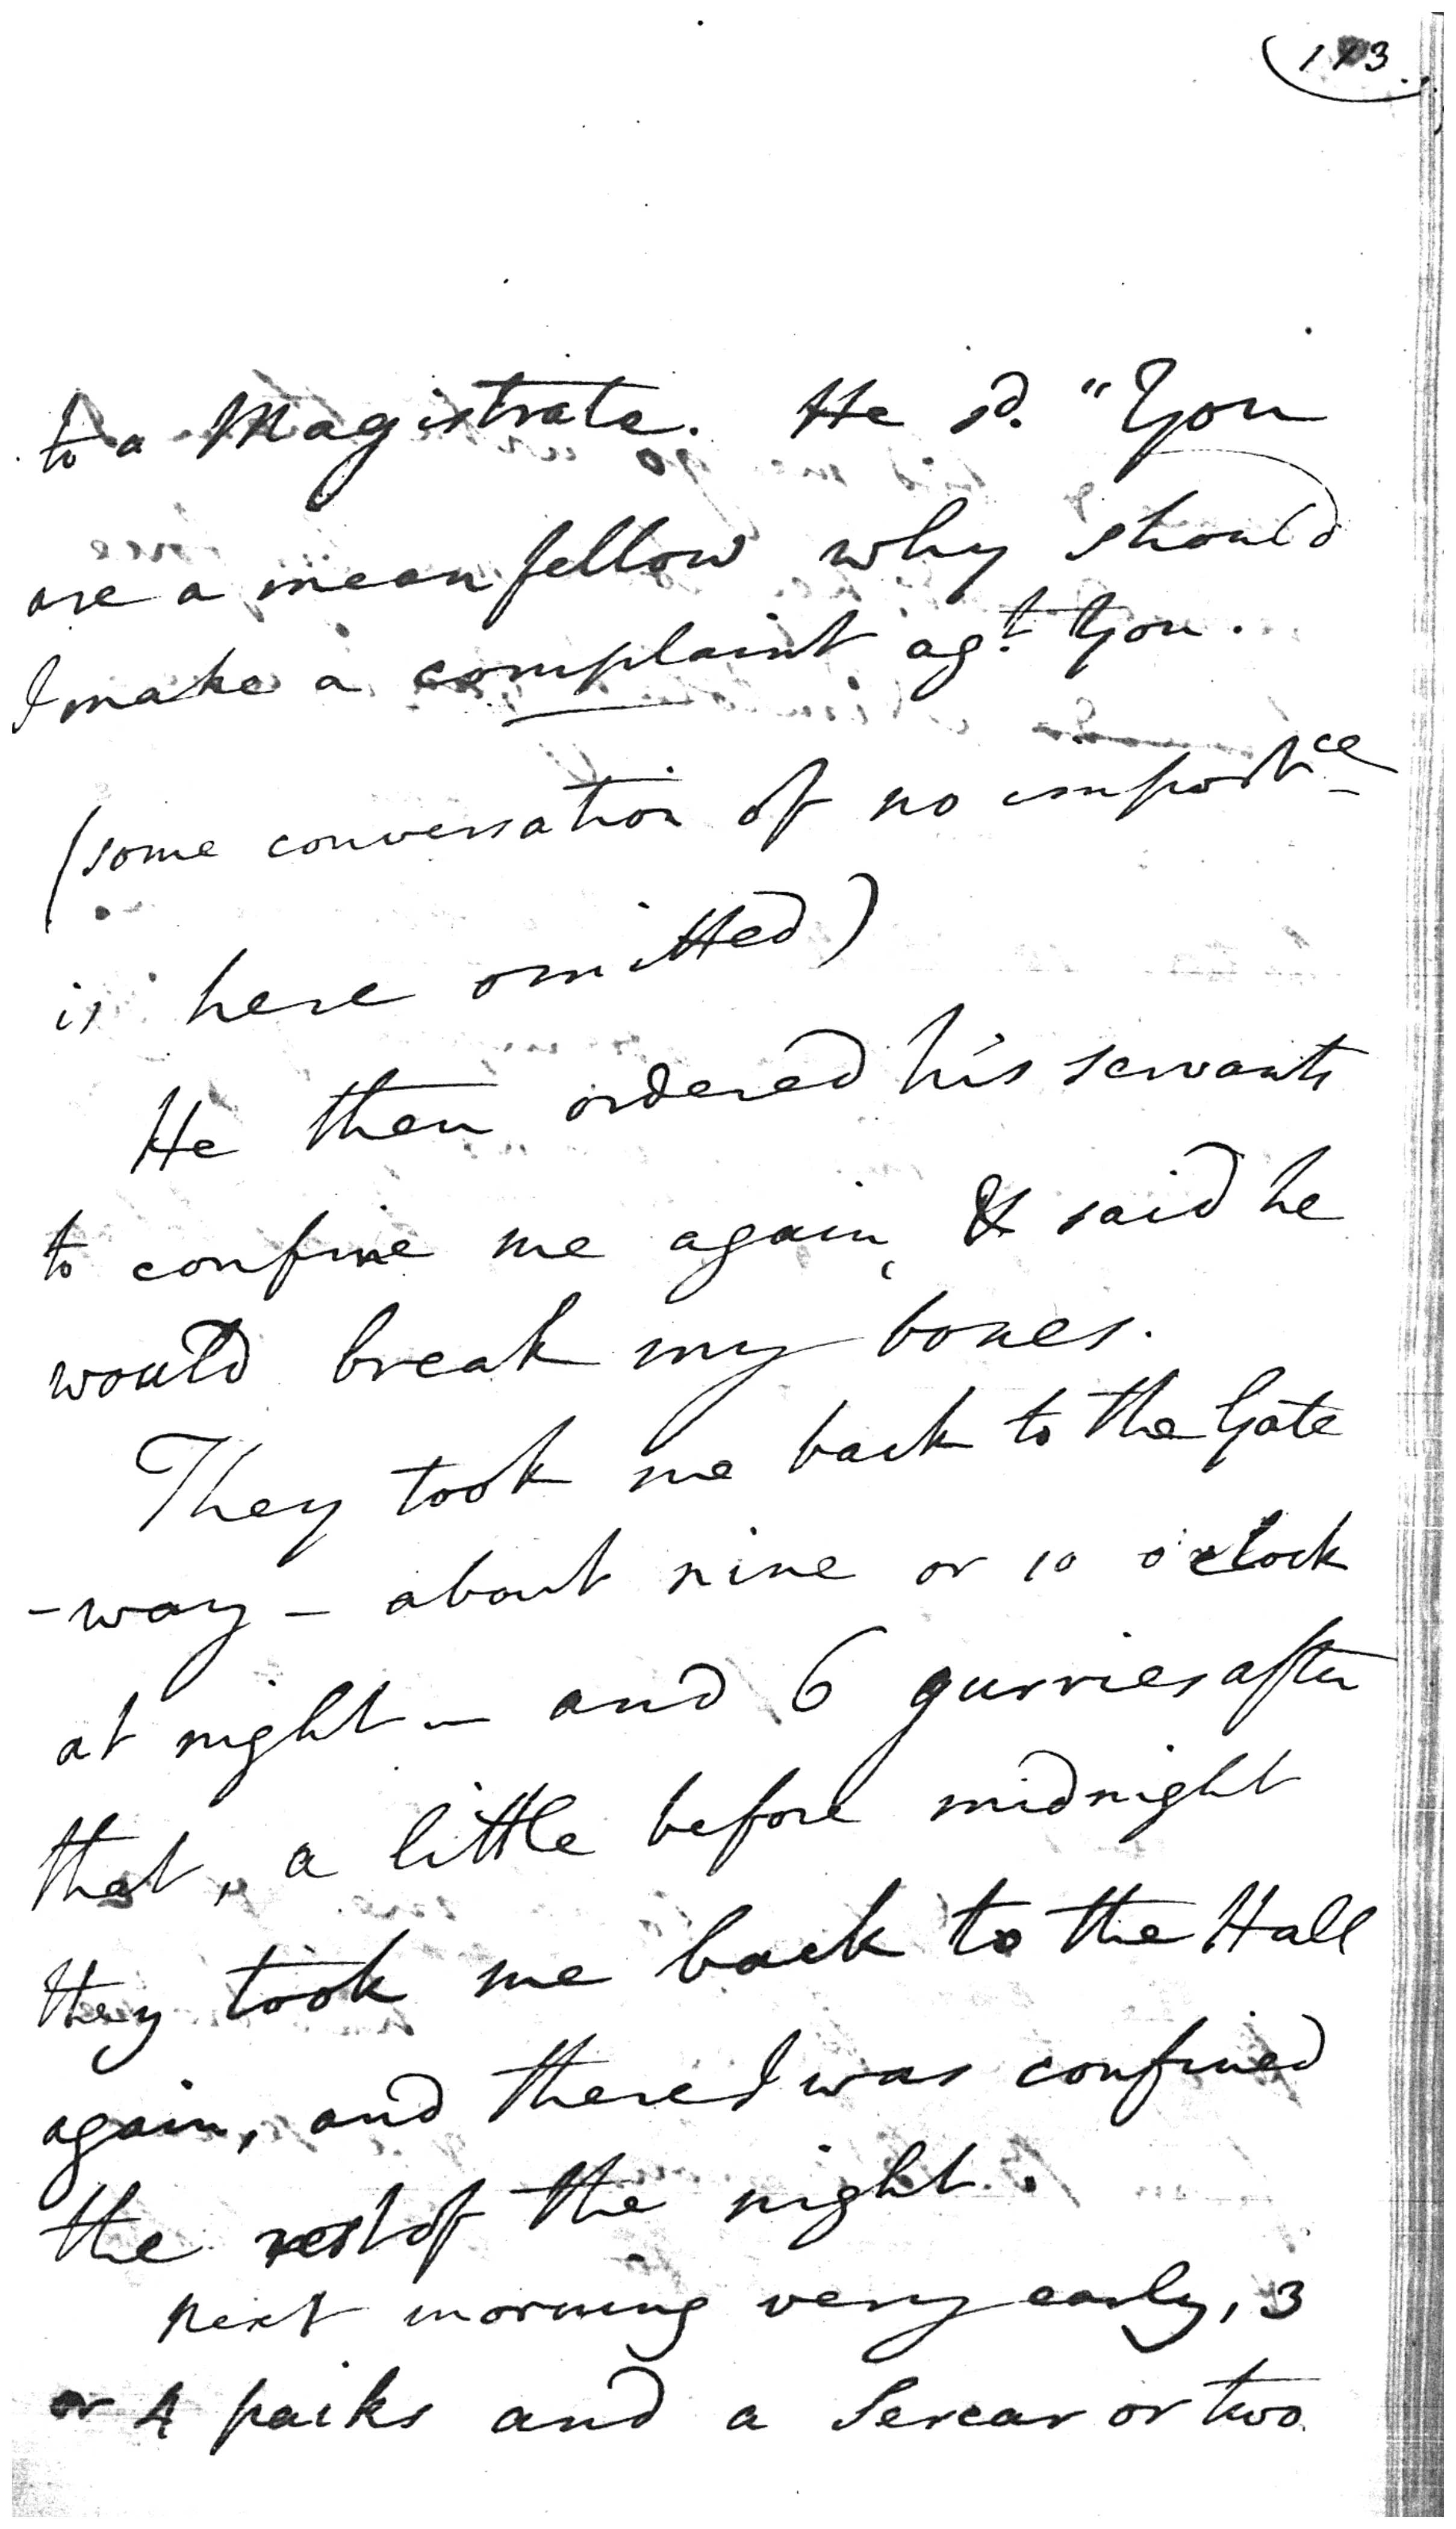 113.
to a Magistrate. He sd. "You
are a mean fellow why should
I make a complaint agt. You.
(some conversation of no importce
is here omitted)
He then ordered his servants
to confine me again, & said he
would break my bones.
They took me back to the Gate
-way - about nine or 10 o'clock
at night - and 6 gurries after
that, a little before midnight
they took me back to the Hall
again, and there I was confined
the rest of the night.
Next morning very early, 3
or 4 paiks and a Sercar or two